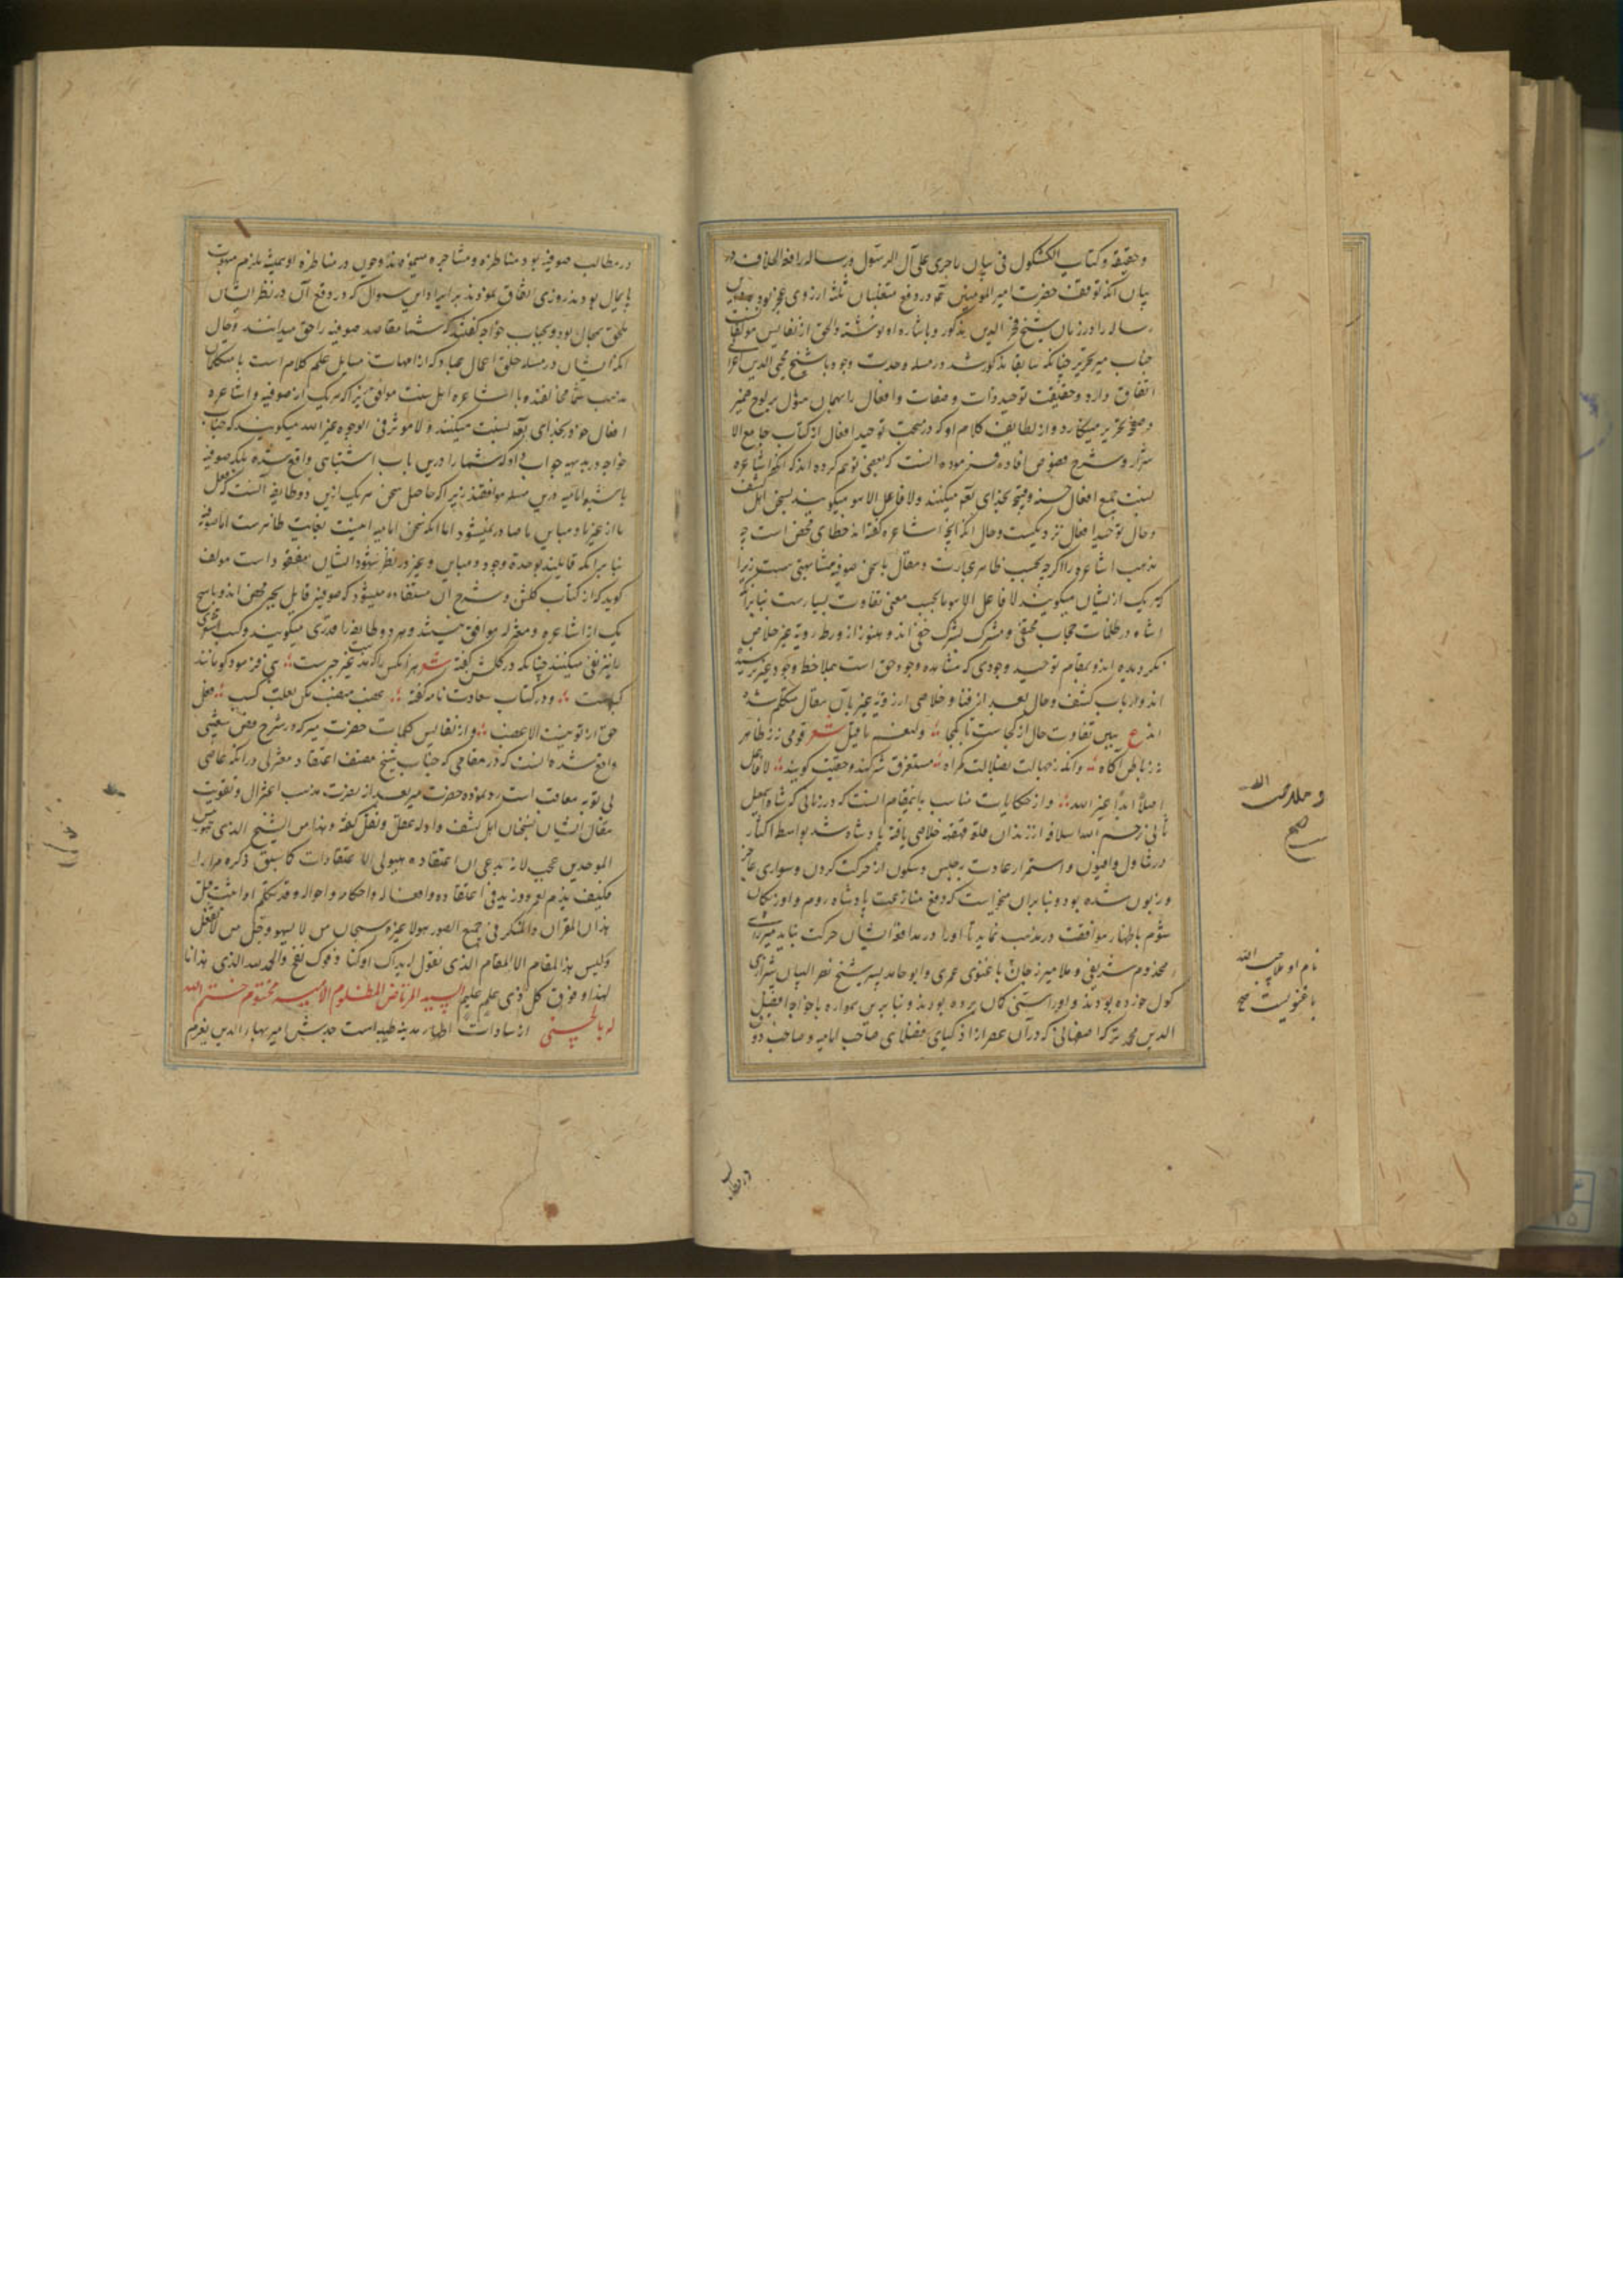 وحقیقة وکتاب الکشکول فی بیان ما جری علی آل الرسول ورساله رافعة الخلاف در
بیان آنکه توقف حضرت امیر المومنین در دفع متغلبان ثلثه از روی عجز نبوده
رساله را در زمان شیخ فخر الدین مذکور و باشاره او نوشته والحق از نفایس مولفات
جناب میر حیدر چنانکه سابقا مذکور شد در مسله وحدت وجود با شیخ محیی الدین اعرابی
اتفاق دارد وحقیقت توحید ذات وصفات وافعال را بهمان منوال بر لوح ضمیر
وصفحه تحریر مینگارد واز لطایف کلام او که در مبحث توحید افعال از کتاب جامع الا
سرار وشرح فصوص افاده فرموده آنست که بعضی توهم کرده اند که آنکه اشاعره
نسبت جمیع افعال حسنه وقبیحه بخدای تعه میکنند ولا فاعل الا هو میگویند بسخن اهل کشف
وحال توحید افعال نزدیکست وحال آنکه آنچه اشاعره گفته اند خطای محض است چه
مذهب اشاعره را اگرچه بحسب ظاهر عبارت ومقال با سخن صوفیه مشابهتی هست زیرا
که هر یک از ایشان میگویند لا فاعل الا هو اما بحسب معنی تفاوت بسیارست بنابرآنکه
اشاعره در ظلمات حجاب مختفی ومشرک بشرک خفی اند وهنوز از ورطه رویة غیر خلاص
نگردیده اند وبمقام توحید وجودی که مشاهده وجود حق است بملاحظه وجود غیر نرسیده
اند وارباب کشف وحال بعد از فنا وخلاصی از رویة غیر باین مقال متکلم شده
اند ع ببین تفاوت حال از کجاست تا بکجا ؞ ولنعم ما قیل شعر قومی ز ظاهر
نه ز باطن آگاه ؞ وآنکه ز جهالت بضلالت گمراه ؞ مستغرق شرکند وحقیقت گویند ؞ لا فاعل
اصلا ابدا غیر الله ؞ واز حکایات مناسب باینمقام آنست که در زمانی که شاه اسمعیل
ثانی از زندان قلعه قهقهه خلاصی یافته پادشاه شد بواسطه اکثار
در تناول افیون واستمرار عادت بجلوس وسکون از حرکت کردن وسواری عاجز
وزبون شده بود وبنابران میخواست که دفع منازعت پادشاه روم واوزبکان
شوم باظهار موافقت در مذهب نماید تا او را در مدافعه ایشان حرکت نباید میرزا
مخدوم شریفی وملا میرزاجان باغنوی عمری وابو حامد پسر شیخ نصر البیان شیرازی
گول خورده بودند واو را سنی گمان برده بودند وبنابرین همواره با خواجه افضل
الدین محمد ترکه اصفهانی که دران عصر از اذکیای فضلای صاحب امامیه وصاحب ذوق
در مطالب
نام او ملا حبیب الله
باغنویست صح
صح
در مطالب صوفیه بود مناظره ومشاجره مینمودند وچون در مناظره او همیشه ملزم مبهوت
پایمال بودند روزی اتفاق نمودند بر ایراد این سوال که در دفع آن در نظر ایشان
ملحق بمحال بود وبجناب خواجه گفتند که شما مقاصد صوفیه را حق میدانند وحال
آنکه ایشان در مسله خلق اعمال عباد که از امهات مسایل علم کلام است با متکلمان
مذهب شما مخالفند وبا اشاعره اهل سنت موافق زیرا که هر یک از صوفیه واشاعره
افعال خود بخدای تعه نسبت میکنند ولا موثر فی الوجود غیر الله میگویند که جناب
خواجه در بدیهه جواب داد که شما را درین باب اشتباهی واقع شده بلکه صوفیه
با شیعه امامیه درین مسله موافقند زیرا که حاصل سخن هر یک ازین دو طایفه آنست که فعل
ما از غیر ما ومباین ما صادر نمیشود اما آنکه سخن امامیه اینست بغایت ظاهرست اما صوفیه
بنابر آنکه قایلند بوحدة وجود ومباین وغیر در نظر شهود ایشان مفقود است مولف
گوید که از کتاب گلشن وشرح آن مستفاده میشود که صوفیه قایل بجبر محض اند وبا هیچ
یک از اشاعره ومعتزله موافق نیستند وهر دو طایفه را قدری میگویند وکسب اشعری
را نیز نفی میکنند چنانکه در گلشن گفته شعر هر آنکس را که مذهب غیر جبرست ؞ نبی فرمود کو مانند
گبرست ؞ ودر کتاب سعادت نامه گفته ؞ محض منصب مکن بعلت کسب ؞ فعل
حق از تو نیست الا غصب ؞ واز نفایس کلمات حضرت میر که در شرح فص شعیبی
واقع شده آنست که در مقامی که جناب شیخ مصنف اعتقاد معتزلی در آنکه عاصی
بی توبه معاقب است رد نموده حضرت میر بعد از نصرت مذهب اعتزال وتقویت
مقال ایشان بسخنان اهل کشف وادله عقل ونقل گفته وهذا من الشیخ الذی هو من
الموحدین عجب لانه یدعی ان اعتقاده هیولی الاعتقادات کما سبق ذکره مرارا
فکیف یذم لعمرو وزید فی اعتقاده وافعاله واحکامه واحواله وقد تکلم او امثت قبل
هذا ان المقر ان والمنکر فی جمیع الصور هو لا غیره سبحان من لا یسهو وجل من لا یغفل
ولیس هذا المقام الا المقام الذی نقول له یداک اوکتا وفوک نفخ والحمد لله الذی هدانا
لهذا وفوق کل ذی علم علیم السید المرتاض المظلوم الامیر مختوم ختم الله
له بالحسنی از سادات اطهار مدینه طیبه است جدش امیر بهاء الدین بعزم